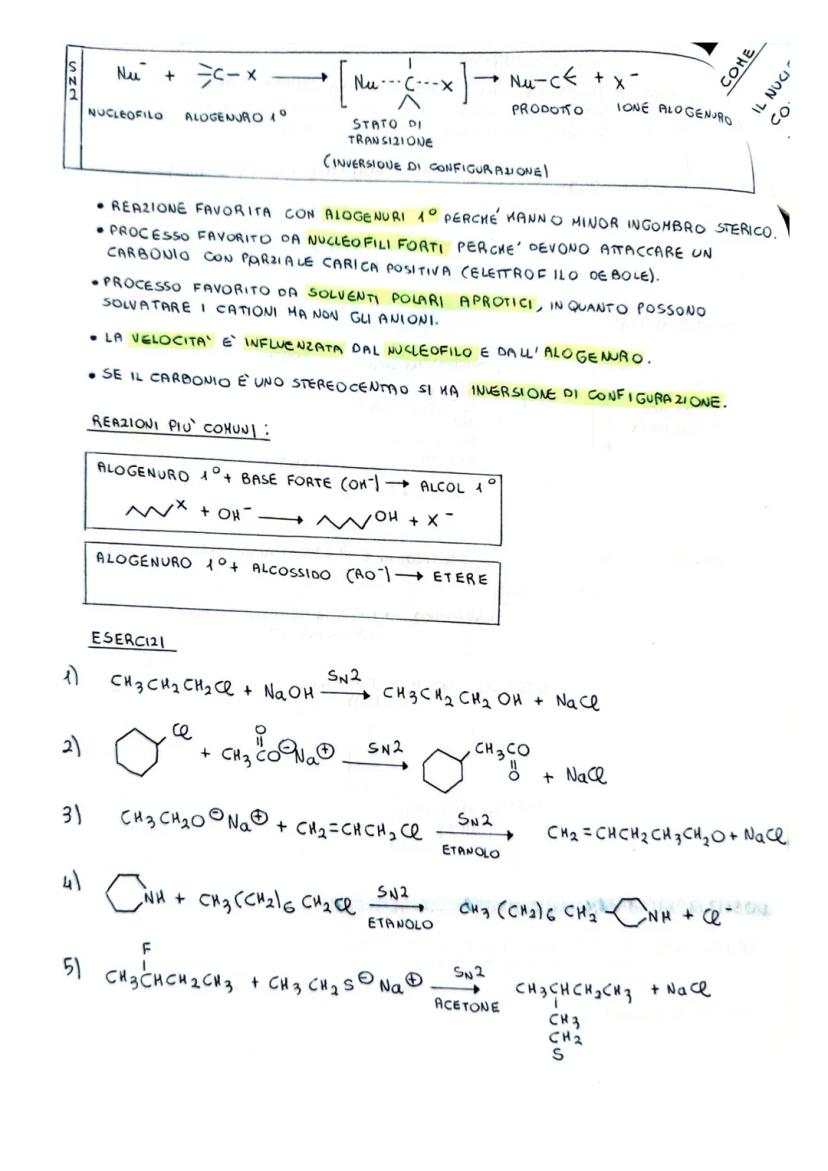 SN2
Nu⁻ + C-X → [Nu---C---X] → Nu-C + X⁻
NUCLEOFILO ALOGENURO 1° STATO DI TRANSIZIONE PRODOTTO IONE ALOGENURO
(INVERSIONE DI CONFIGURAZIONE)
COME
IL
CO
• REAZIONE FAVORITA CON ALOGENURI 1° PERCHÉ HANNO MINOR INGOMBRO STERICO.
• PROCESSO FAVORITO DA NUCLEOFILI FORTI PERCHE' DEVONO ATTACCARE UN
CARBONIO CON PARZIALE CARICA POSITIVA (ELETTROFILO DEBOLE).
• PROCESSO FAVORITO DA SOLVENTI POLARI APROTICI, IN QUANTO POSSONO
SOLVATARE I CATIONI MA NON GLI ANIONI.
• LA VELOCITA' E' INFLUENZATA DAL NUCLEOFILO E DALL'ALOGENURO.
• SE IL CARBONIO È UNO STEREOCENTRO SI HA INVERSIONE DI CONFIGURAZIONE.
REAZIONI PIU' COMUNI:
ALOGENURO 1° + BASE FORTE (OH⁻) → ALCOL 1°
X + OH⁻ → OH + X⁻
ALOGENURO 1° + ALCOSSIDO (RO⁻) → ETERE
ESERCIZI
1) CH3CH2CH2Cl + NaOH SN2 → CH3CH2CH2OH + NaCl
2) Cl + CH3CO⊖Na⊕ O SN2 → CH3CO O + NaCl
3) CH3CH2O⊖Na⊕ + CH2=CHCH2Cl SN2 → ETANOLO CH2=CHCH2CH3CH2O + NaCl
4) NH + CH3(CH2)6CH2Cl SN2 → ETANOLO CH3(CH2)6CH2 NH + Cl⁻
5) F
CH3CHCH2CH3 + CH3CH2S⊖Na⊕ SN2 → ACETONE CH3CHCH2CH3 + NaCl
CH3
CH2
S